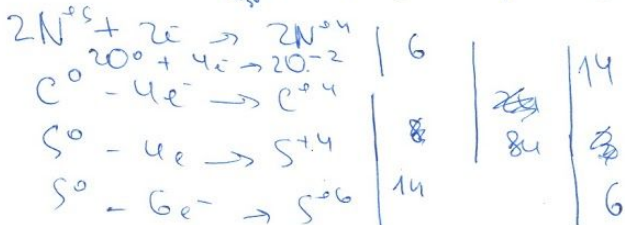 2N⁺⁵ + 2ē → 2N⁺⁴ | 6
2O⁰ + 4ē → 2O⁻² | 14
C⁰ - 4e⁻ → C⁺⁴
S⁰ - 4e → S⁺⁴ | 84
S⁰ - 6e⁻ → S⁺⁶ | 14 | 6